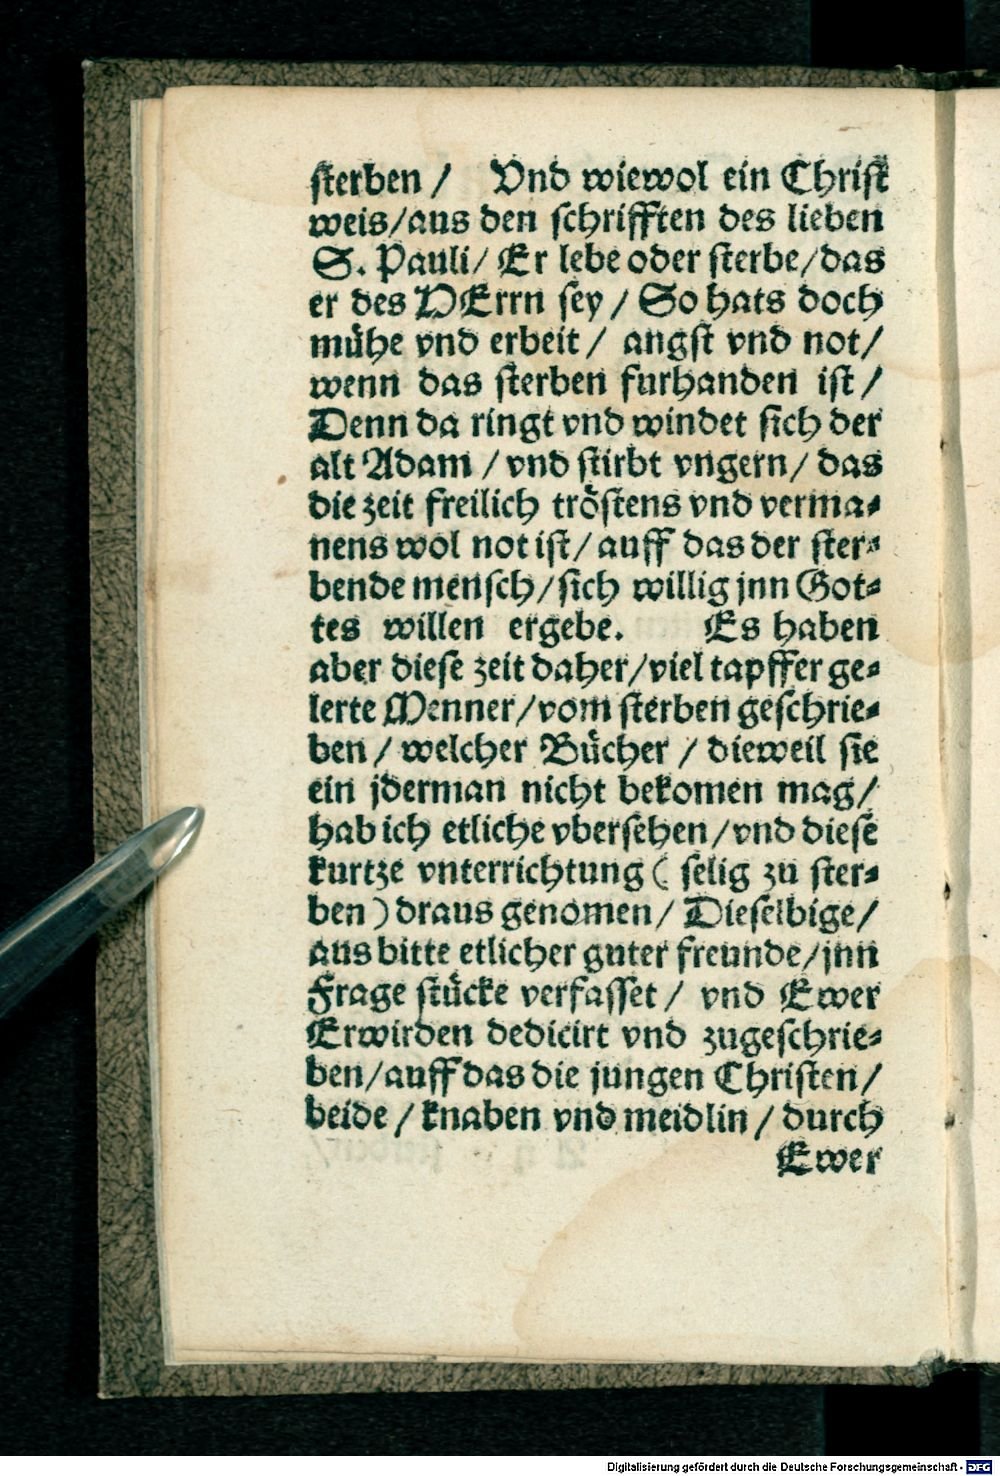 sterben / Vnd wiewol ein Christ
weis/aus den schrifften des lieben
S. Pauli/ Er lebe oder sterbe/das
er des HErrn sey / So hats doch
mühe vnd erbeit / angst vnd not/
wenn das sterben furhanden ist /
Denn da ringt vnd windet sich der
alt Adam / vnd stirbt vngern/ das
die zeit freilich tröstens vnd verma⸗
nens wol not ist/ auff das der ster⸗
bende mensch/sich willig jnn Got⸗
tes willen ergebe. Es haben
aber diese zeit daher/viel tapffer ge⸗
lerte Menner/vom sterben geschrie⸗
ben / welcher Bücher / dieweil sie
ein jderman nicht bekomen mag/
hab ich etliche vbersehen/vnd diese
kurtze vnterrichtung ( selig zu ster⸗
ben ) draus genomen/ Dieselbige/
aus bitte etlicher guter freunde/jnn
Frage stücke verfasset / vnd Ewer
Erwirden dedicirt vnd zugeschrie⸗
ben/auff das die jungen Christen/
beide / knaben vnd meidlin / durch
Ewer
Digitalisierung gefördert durch die Deutsche Forschungsgemeinschaft - DFG